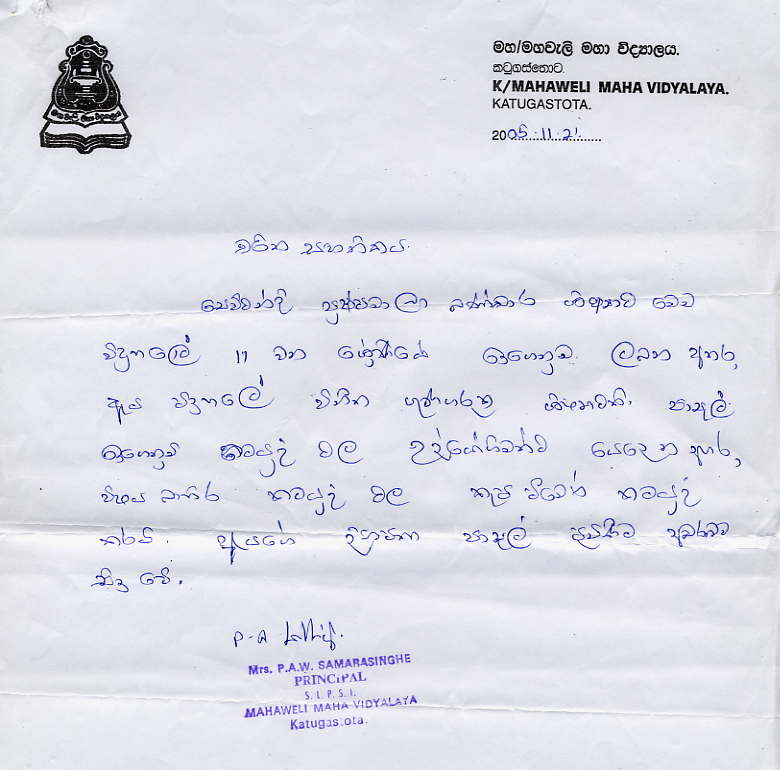 මහ/මහවැලි මහා විද්‍යාලය.
කටුගස්තොට.
K/MAHAWELI MAHA VIDYALAYA.
KATUGASTOTA.
2005.11.21
චරිත සහතිකය.
සෙව්වන්දි පුෂ්පමාලා බණ්ඩාර ශිෂ්‍යාව මෙම
විදුහලේ 11 වන ශ්‍රේණියේ ඉගෙනුම ලබන අතර,
ඇය විදුහලේ විනීත ගුණගරුක ශිෂ්‍යාවකි. පාසල්
ඉගෙනුම් කටයුතු වල උද්යෝගිමත්ව යෙදෙන අතර,
විෂය බාහිර කටයුතු වල කැප වීමෙන් කටයුතු
කරයි. ඇයගේ පාසල් පැමිණීම
සිදු වේ.
P-A
Mrs. P.A.W. SAMARASINGHE
PRINCIPAL
S. L. P. S. I.
MAHAWELI MAHA VIDYALAYA
Katugastota.